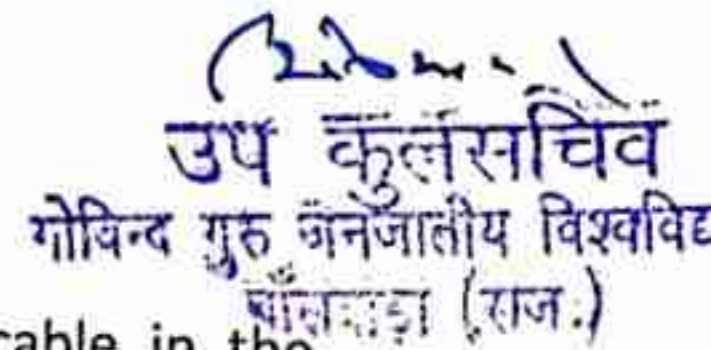 उप कुलसचिव
गोविन्द गुरु जनजातीय विश्वविद्य
बाँसवाड़ा (राज.)
cable in the